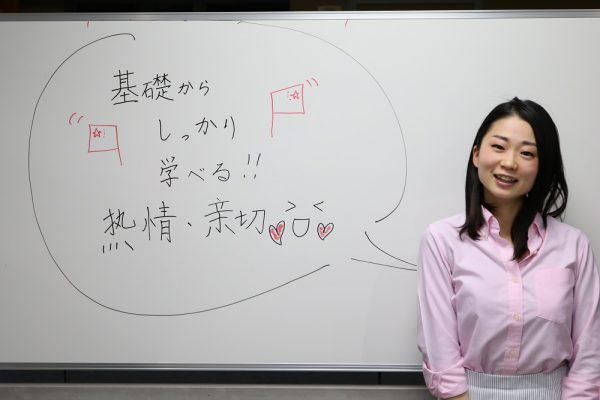 基礎から
しっかり
学べる!!
热情、亲切